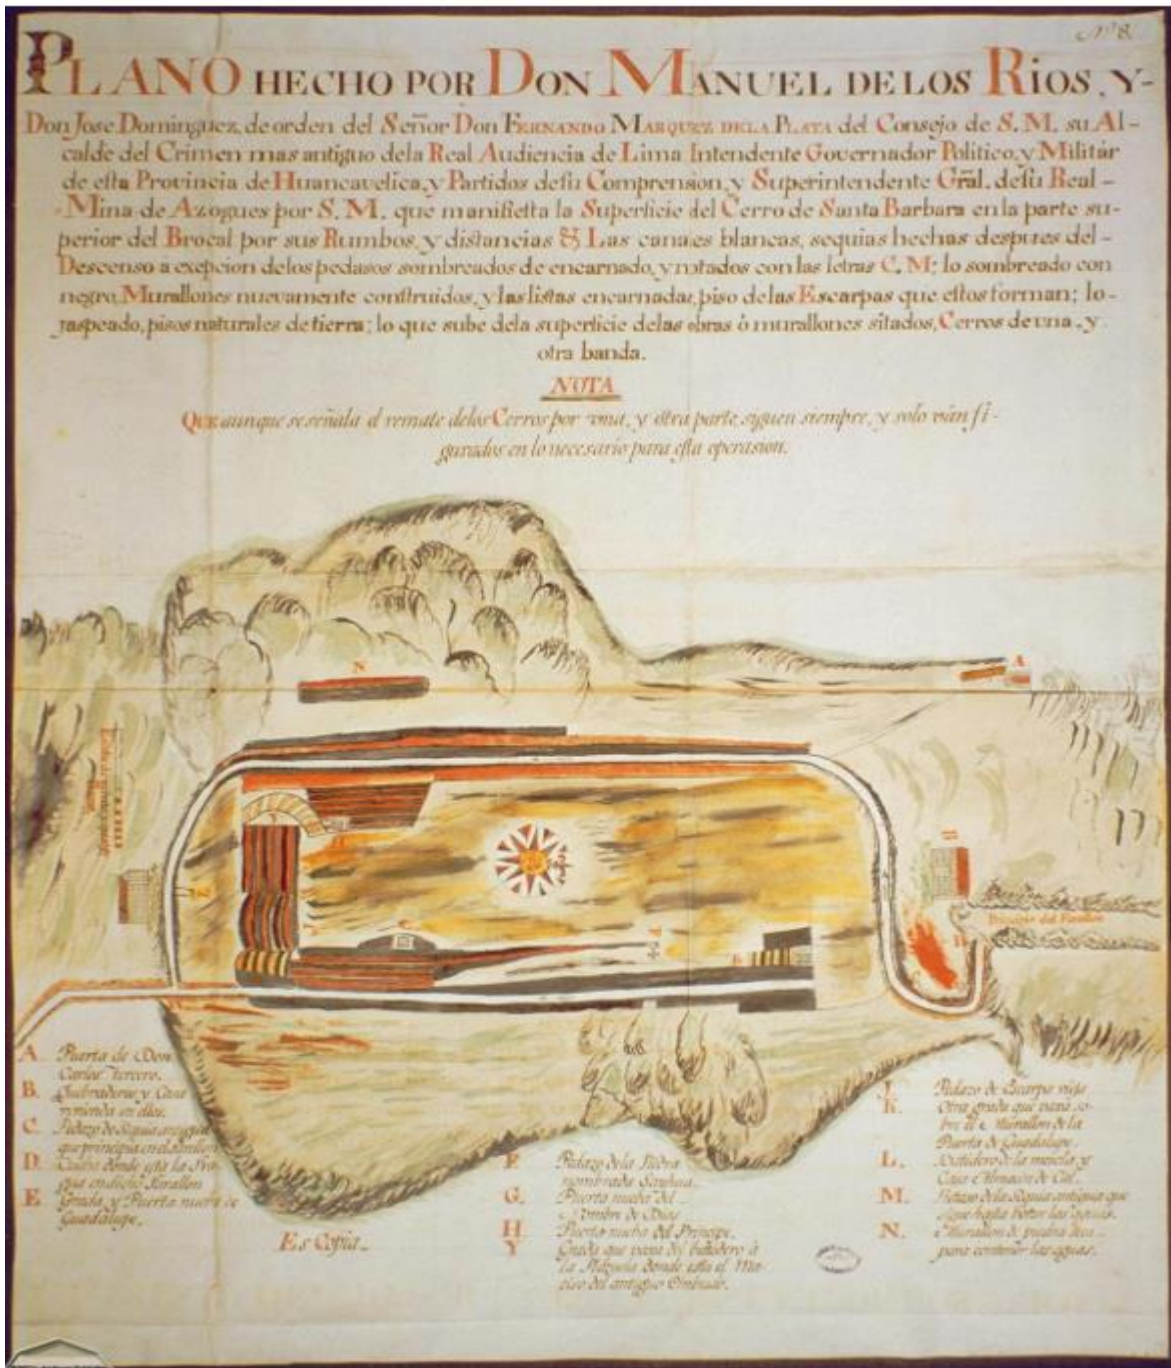 Nº 8.
PLANO HECHO POR DON MANUEL DE LOS RIOS, Y-
Don Jose Dominguez, de orden del Señor Don FERNANDO MARQUEZ DE LA PLATA del Consejo de S. M. su Al-
calde del Crimen mas antiguo dela Real Audiencia de Lima Intendente Governador Politico, y Militár
de esta Provincia de Huancavelica, y Partidos desu Comprension, y Superintendente Grãl. desu Real-
Mina de Azogues por S. M. que manifiesta la Superficie del Cerro de Santa Barbara en la parte su-
perior del Brocal por sus Rumbos, y distancias & Las canales blancas, sequias hechas despues del-
Descenso a exepcion delos pedasos sombreados de encarnado, y notados con las letras C. M: lo sombreado con
negro, Murallones nuevamente construidos, y las listas encarnadas, piso delas Escarpas que estos forman; lo-
jaspeado, pisos naturales de tierra; lo que sube dela superficie delas obras ò murallones sitados, Cerros de una, y
otra banda.
NOTA
QUE aunque se señala el remate delos Cerros por una, y otra parte, siguen siempre, y solo ván fi-
gurados en lo necesario para esta operasion.
N
A
Y
C
F
E
H
Principio del Farallon
A Puerta de Don
Carlos tercero.
B. Quebraderos y Casa
en ellos.
C. Pedazo de Sequia antigua
que principia en el farallon
D. donde esta la
en dicho Farallon
E Grada, y Puerta nueva de
Guadalupe.
Es Copia_
F Pedazo de la Piedra
nombrada
G. Puerta nueba del
Nombre de Dios
H Puerta nueba del Principe.
Y Grada que vaxa del batidero à
la Plazuela donde esta el Ma-
ciso del antiguo Ombudo.
J. Pedazo de Escarpa vieja
K. Otra grada que vaxa so-
bre el Murallon de la
Puerta de Guadalupe.
L. Batidero de la mescla y
Casa Almacen de Cal.
M. Pedazo de la Sequia antigua que
sigue hasta botar las aguas.
N. Murallon de piedra seca
para contener las aguas.